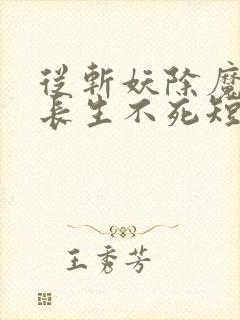 從斬妖除魔
長生不死短
王秀芳